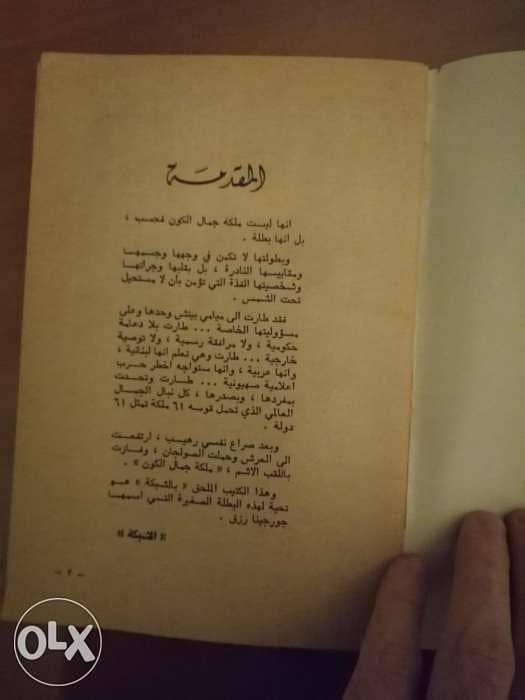 المقدمة
انها ليست ملكة جمال الكون فحسب ،
بل انها بطلة .
وبطولتها لا تكمن في وجهها وجسمها
ومقاييسها النادرة ، بل بقلبها وجرأتها
وشخصيتها الفذة التي تؤمن بأن لا مستحيل
تحت الشمس .
فقد طارت الى ميامي بيتش وحدها وعلى
مسؤوليتها الخاصة ... طارت بلا دعامة
حكومية ، ولا مرافقة رسمية ، ولا توصية
خارجية ... طارت وهي تعلم انها لبنانية ،
وانها عربية ، وانها ستواجه اخطر حرب
اعلامية صهيونية ... طارت وتحدت
بمفردها ، وبصدرها ، كل نبال الجمال
العالمي الذي تحمل قوسه ٦١ ملكة تمثل ٦١
دولة .
وبعد صراع نفسي رهيب ، ارتفعت
الى العرش وحملت الصولجان ، وفازت
باللقب الاشم ، « ملكة جمال الكون » .
وهذا الكتيب الملحق « بالشبكة » هو
تحية لهذه البطلة الصغيرة التي اسمها
جورجينا رزق .
« الشبكة »
- ٢ -
OLX